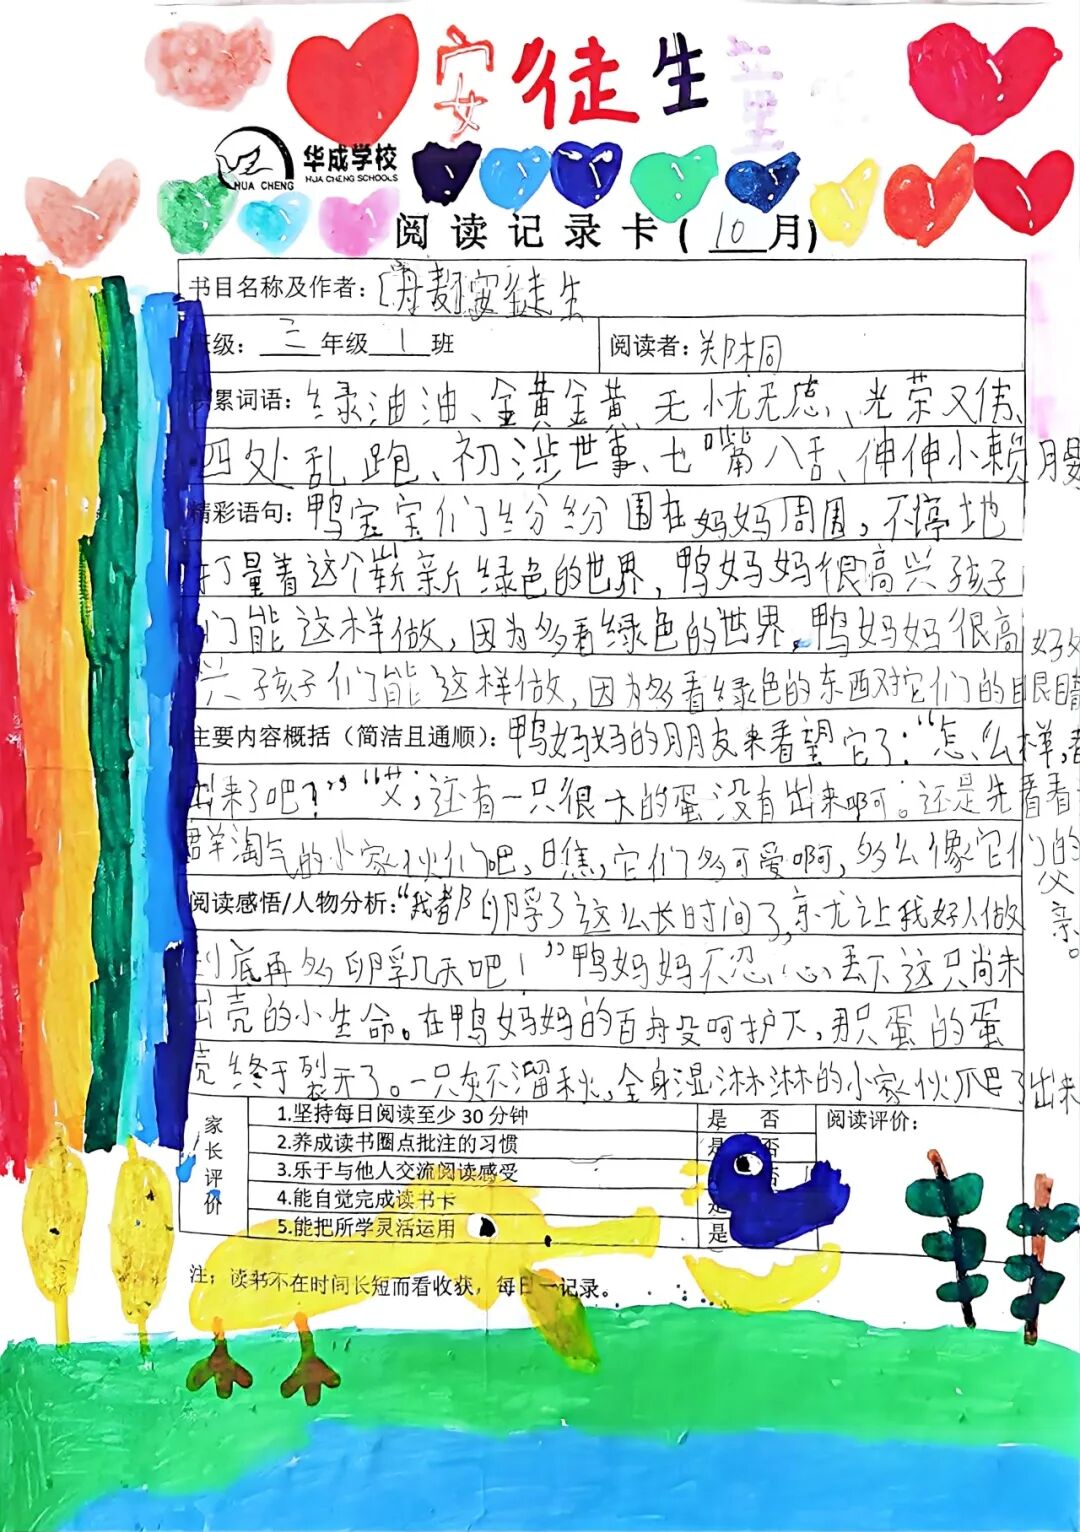 安徒生童
华成学校
HUA CHENG
HUA CHENG SCHOOLS
阅读记录卡(10月)
书目名称及作者：[丹麦]安徒生
班级：三年级1班
阅读者：郑桐
累词语：绿油油、金黄金黄、无忧无虑、光荣又伟、
四处乱跑、初涉世事、七嘴八舌、伸伸小懒腰
精彩语句：鸭宝宝们纷纷围在妈妈周围，不停地
打量着这个崭新绿色的世界，鸭妈妈很高兴孩子
们能这样做，因为多看绿色的世界，鸭妈妈很高
兴孩子们能这样做，因为多看绿色的东西对它们的眼睛
好处
主要内容概括（简洁且通顺）：鸭妈妈的朋友来看望它了：“怎么样，都
出来了吧？”“艾；还有一只很大的蛋没有出来啊。还是先看看
群淘气的小家伙们吧，瞧，它们多可爱啊，多么像它们的
父亲。
阅读感悟/人物分析：“我都卵孵了这么长时间了，就让我好人做
到底再多卵孵几天吧！”鸭妈妈不忍心丢下这只尚未
出壳的小生命。在鸭妈妈的百般呵护下，那只蛋的蛋
壳终于裂开了。一只灰不溜秋，全身湿淋淋的小家伙爬了出来
家长评价
1.坚持每日阅读至少30分钟 是 否
2.养成读书圈点批注的习惯 是 否
3.乐于与他人交流阅读感受 否
4.能自觉完成读书卡 是
5.能把所学灵活运用 是
阅读评价：
注：读书不在时间长短而看收获，每日一记录。